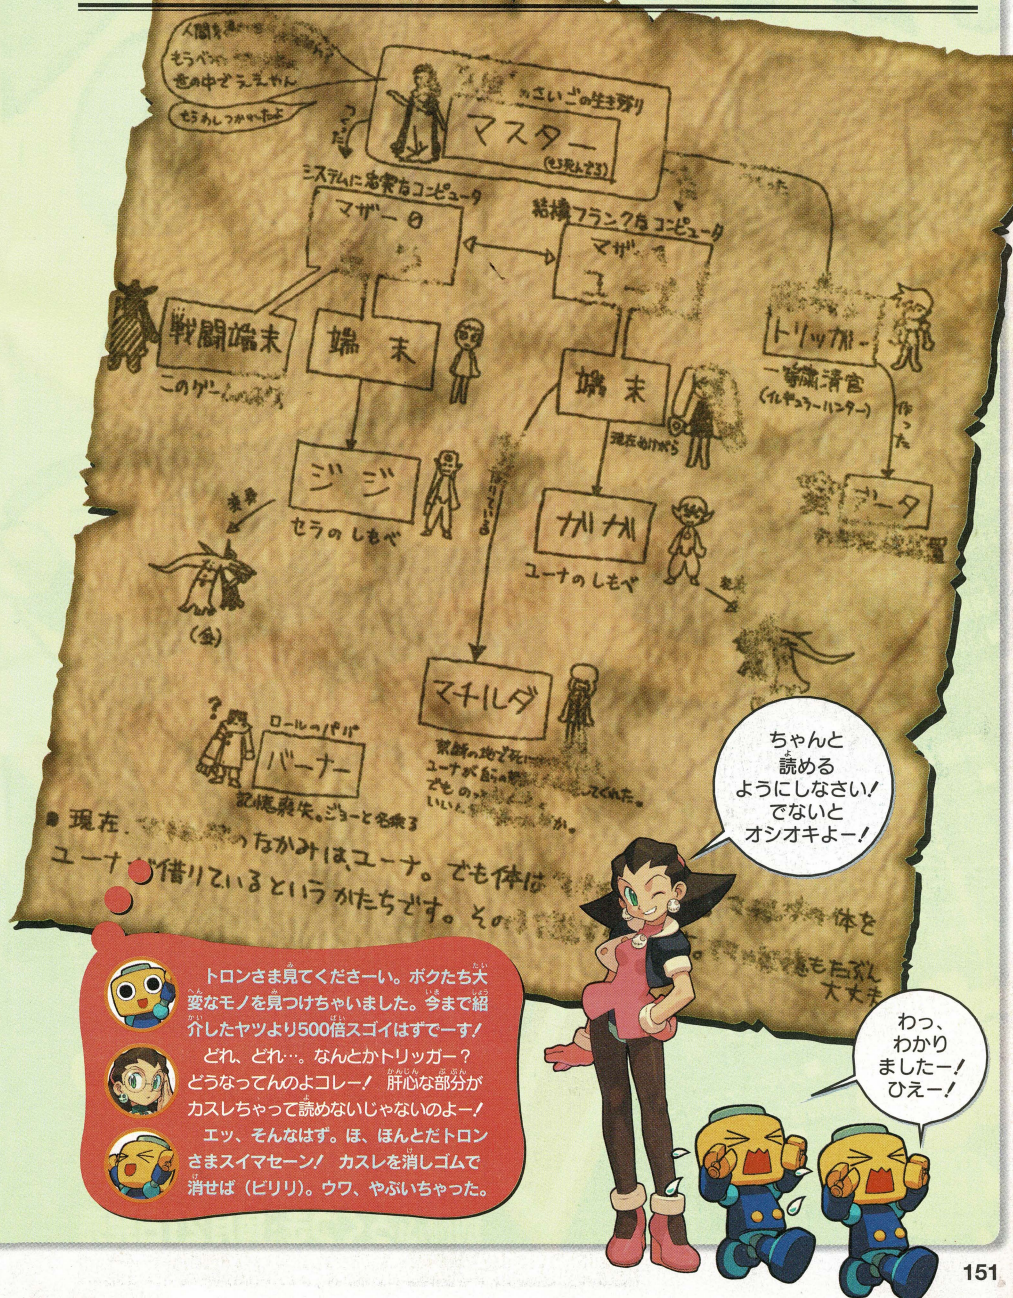 人間を
もうべつ
世の中でええやん
もうわしつかれたよ
さいごの生き残り
マスター
(もう死んでる)
つくった
システムに忠実なコンピュータ
マザー0
結構フランクなコンピュータ
マザ
ユー
戦闘端末
このゲー
端末
端末
現在ぬけがら
トリッガー
一等粛清官
(イレギュラーハンター)
作った
データ
ジジ
セラのしもべ
変身
(金)
借りている
ガガ
ユーナのしもべ
変身
マチルダ
禁断の地で死に
ユーナが自らの
てくれた。
でもの
いい
か。
?
ロールのパパ
バーナー
記憶喪失。ジョーと名乗る
●現在、
のなかみは、ユーナ。でも体は
体を
ユーナが借りているというかたちです。その
もたぶん
大丈夫
ちゃんと
読める
ようにしなさい!
でないと
オシオキよー!
トロンさま見てくださーい。ボクたち大
変なモノを見つけちゃいました。今まで紹
介したヤツより500倍スゴイはずでーす!
どれ、どれ…。なんとかトリッガー?
どうなってんのよコレー! 肝心な部分が
カスレちゃって読めないじゃないのよー!
エッ、そんなはず。ほ、ほんとだトロン
さまスイマセーン! カスレを消しゴムで
消せば(ビリリ)。ウワ、やぶいちゃった。
わっ、
わかり
ましたー!
ひえー!
151